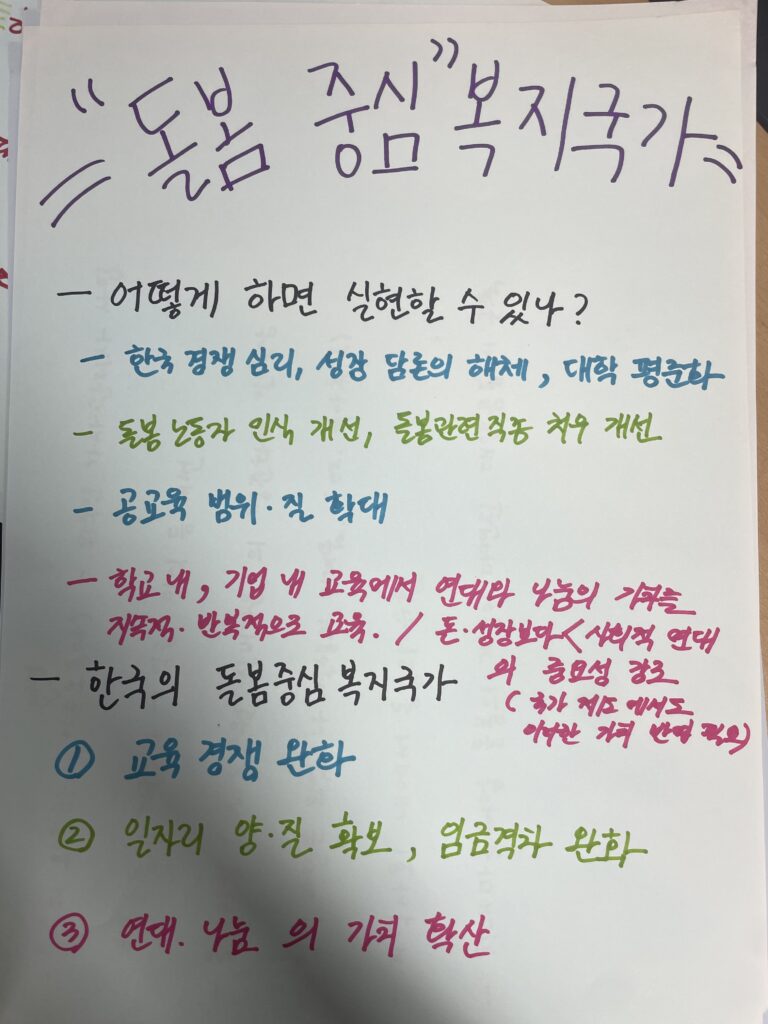 "돌봄 중심" 복지국가
- 어떻게 하면 실현할 수 있나?
- 한국 경쟁 심리, 성장 담론의 해체, 대학 평준화
- 돌봄 노동자 인식 개선, 돌봄관련 직종 처우 개선
- 공교육 범위·질 확대
- 학교 내, 기업 내 교육에서 연대와 나눔의 가치를
지속적·반복적으로 교육. / 돈·성장보다 < 사회적 연대
의 중요성 강조
(국가 제도에서도
이러한 가치 반영 필요)
- 한국의 돌봄중심 복지국가
① 교육 경쟁 완화
② 일자리 양·질 확보, 임금격차 완화
③ 연대·나눔의 가치 확산